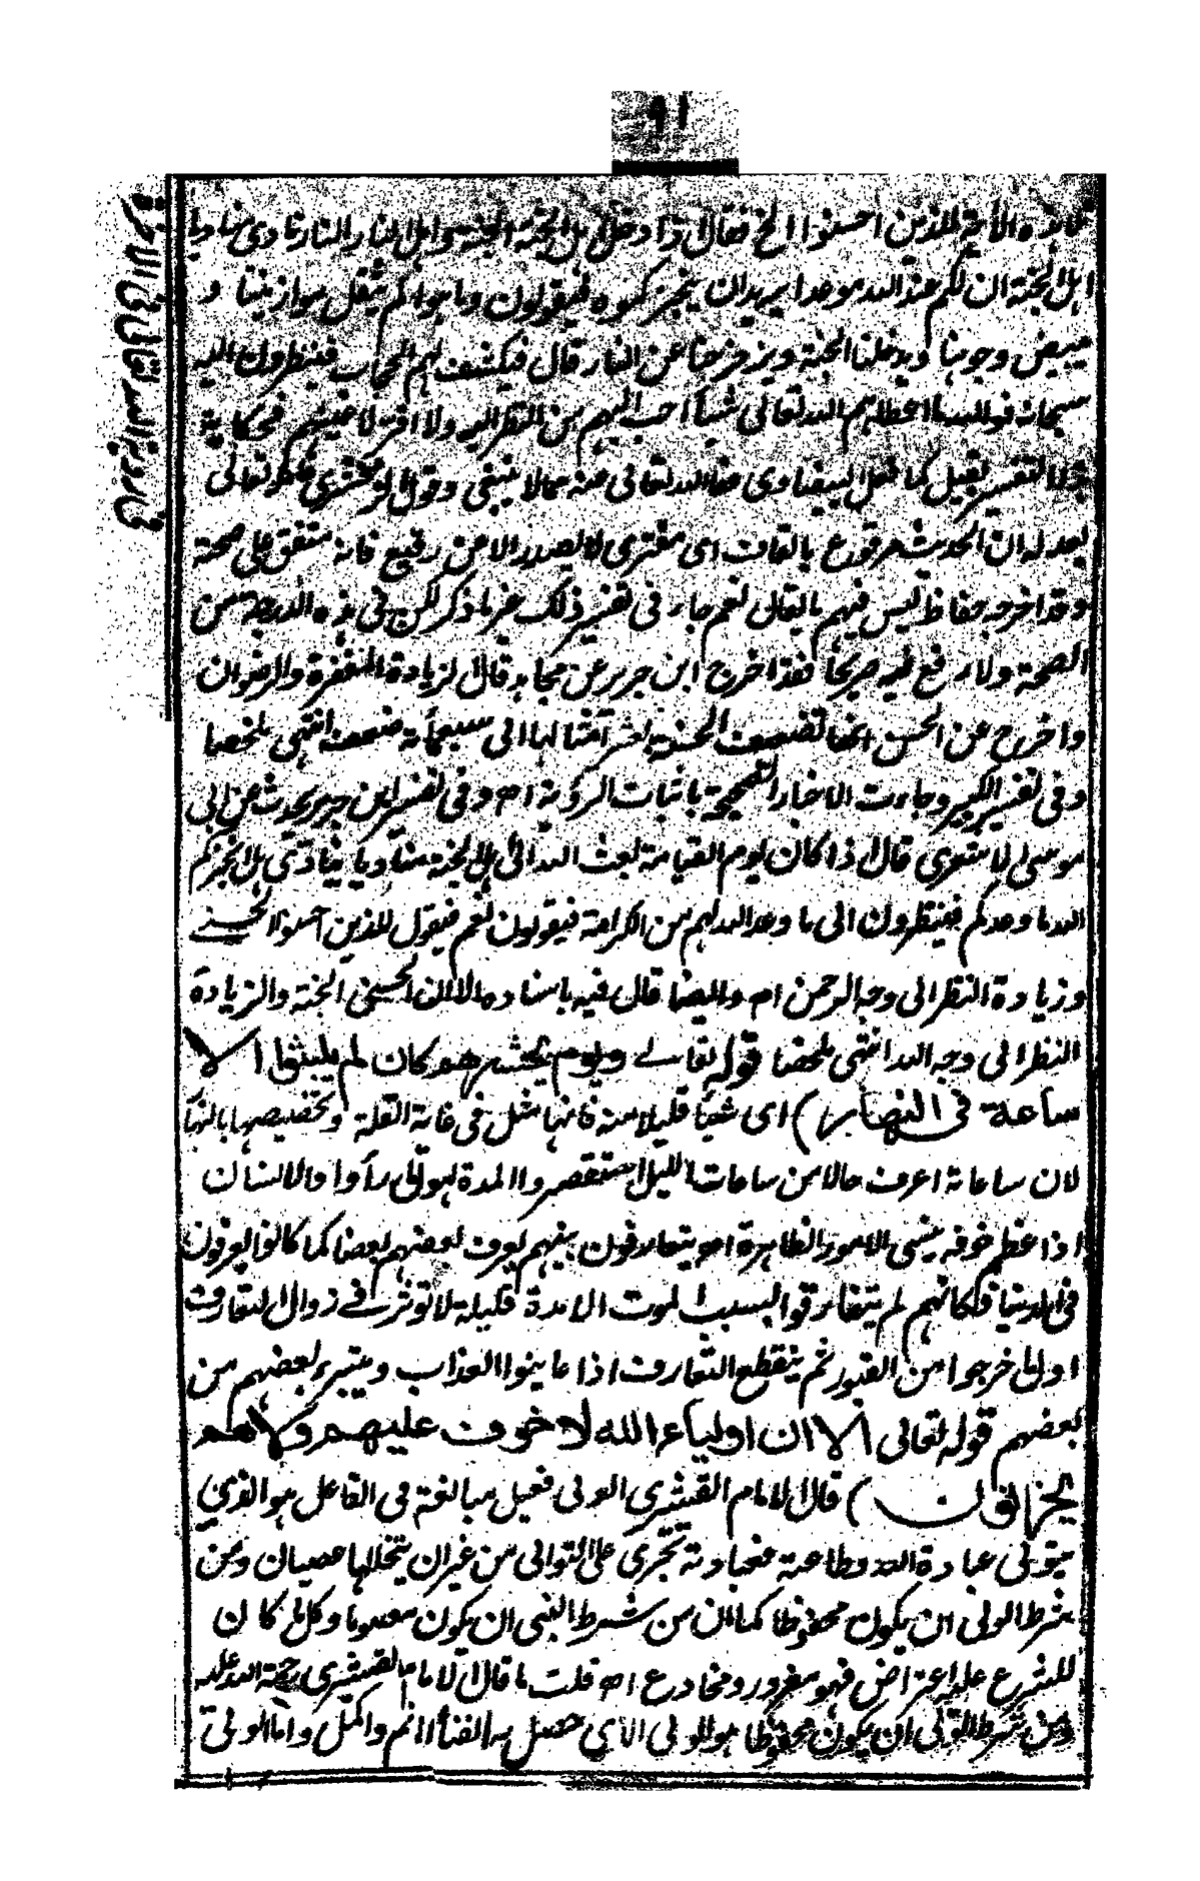 ٩١
تلا هذه الآية للذين احسنوا الخ فقال اذا دخل اهل الجنة الجنة واهل النار النار نادى مناد يا
اهل الجنة ان لكم عند الله موعدا يريد ان ينجزكموه فيقولون وما هو الم يثقل موازيننا و
يبيض وجوهنا ويدخلنا الجنة ويزحزحنا عن النار قال فيكشف لهم الحجاب فينظرون اليه
سبحانه فوالله ما اعطاهم الله تعالى شيأ احب اليهم من النظر اليه ولا اقر لاعينهم فحكاية
هذا التفسير بقيل كما فعل البيضاوى عفا الله تعالى عنه مما لا ينبغى وقول الزمخشرى عامله تعالى
بعدله ان الحديث مرقوع بالقاف اى مفترى لا يصدر الا عن رقيع فانه متفق على صحة
وقد اخرجه حفاظ ليس فيهم ما يقال نعم جاء فى تفسير ذلك غير ما ذكر لكن ليس فى هذه الدرجة من
الصحة ولا رفع فيه صريحا فقد اخرج ابن جرير عن مجاهد قال الزيادة المغفرة والرضوان
واخرج عن الحسن انها تضعيف الحسنة بعشر امثالها الى سبعمأة ضعف انتهى ملخصا
وفى تفسير الكبير وجاءت الاخبار الصحيحة باثبات الرؤية اھ وفى تفسير ابن جرير يحدث عن ابى
موسى الاشعرى قال اذا كان يوم القيامة بعث الله الى اهل الجنة مناديا ينادى هل انجزكم
الله ما وعدكم فينظرون الى ما وعد الله لهم من الكرامة فيقولون نعم فيقول للذين احسنوا الحسنى
وزيادة النظر الى وجه الرحمن اھ وايضا قال فيه باسناده الا ان الحسنى الجنة والزيادة
النظر الى وجه الله انتهى ملخصا قوله تعالى ويوم يحشرهم كان لم يلبثوا الا
ساعة فى النهار) اى شيأ قليلا منه فانها مثل فى غاية القلة وتخصيصها بالنهار
لان ساعاته اعرف حالا من ساعات الليل استقصروا المدة لهول ما رأوا والانسان
اذا عظم خوفه ينسى الامور الظاهرة اھ يتعارفون بينهم يعرف بعضهم بعضا كما كانوا يعرفون
فى الدنيا فكانهم لم يتفارقوا بسبب الموت الا مدة قليلة لا تؤثر فى زوال التعارف
اول ما خرجوا من القبور ثم ينقطع التعارف اذا عاينوا العذاب ويتبرء بعضهم من
بعضهم قوله تعالى الا ان اولياء الله لا خوف عليهم ولا هم
يحزنون) قال الامام القشيرى الولى فعيل مبالغة من الفاعل هو الذى
يتولى عبادة الله وطاعته فعبادته تجرى على التوالى من غير ان يتخللها عصيان ومن
شرط الولى ان يكون محفوظا كما ان من شرط النبى ان يكون معصوما وكل من كان
للشرع عليه اعتراض فهو مغرور ومخادع اھ قلت ما قال الامام القشيرى رحمة الله عليه
ومن شرط الولى ان يكون محفوظا هو الولى الذى حصل له الفناأ الاتم والاكمل واما الولى